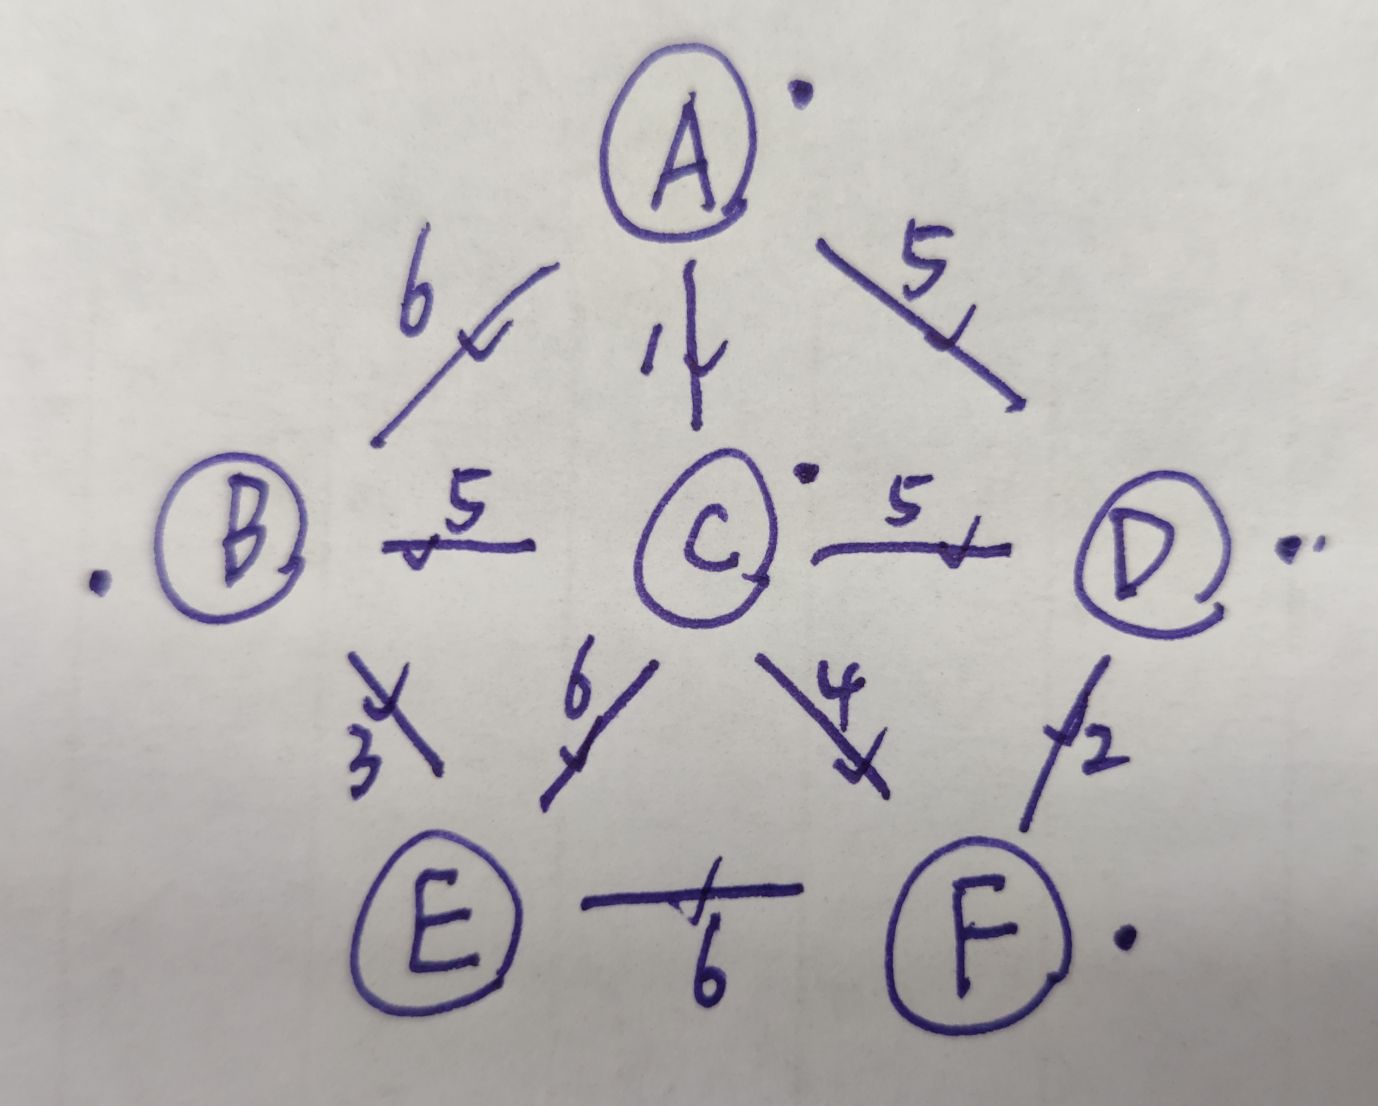 A
6 1 5
B 5 C 5 D
3 6 4 2
E 6 F